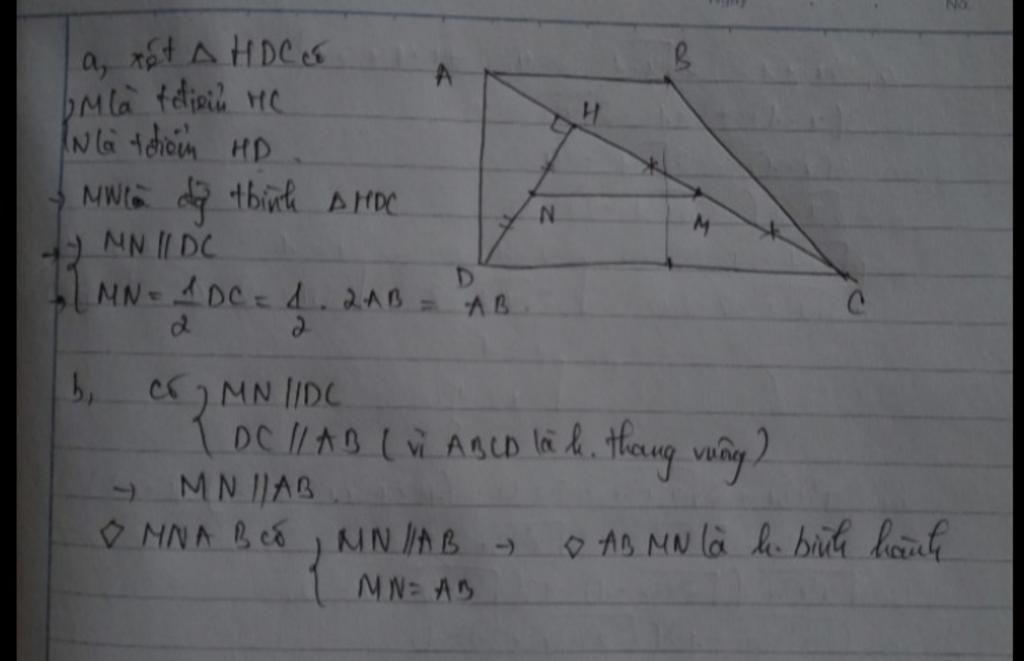 a, xét △ HDC có
M là tđiểm HC
N là tđiểm HD
→ MN là đg tbình △HDC
→ MN // DC
→ MN = 1/2 DC = 1/2 . 2AB = AB
b, có MN // DC
DC // AB ( vì ABCD là h. thang vuông)
→ MN // AB
◇ MNAB có MN // AB → ◇ ABMN là h. bình hành
MN = AB
A
B
H
N
M
D
C
No.